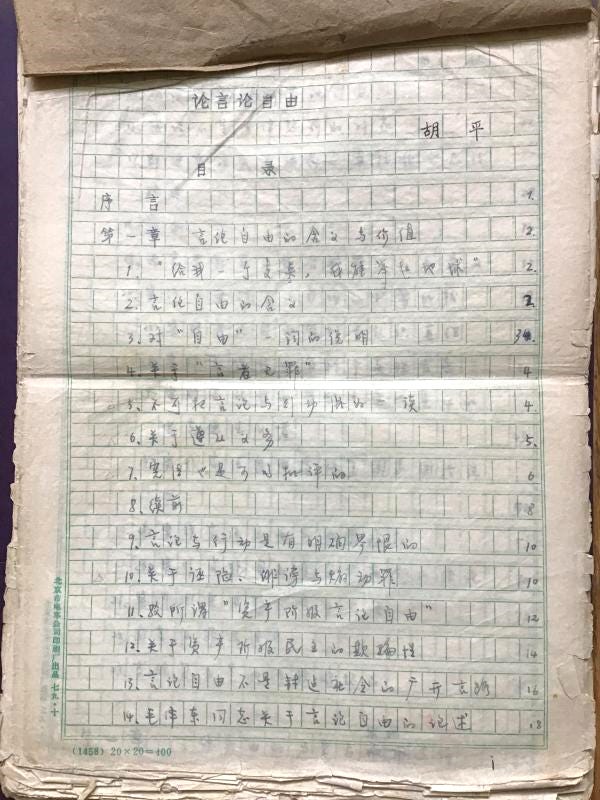 论言论自由
胡 平
目 录
序 言 1.
第一章 言论自由的含义与价值 2.
1. “给我一个支点,我能举红地球” 2.
2. 言论自由的含义 3.
3. 对“自由”一词的说明 3
4. 关于“言者无罪” 4
5. 不可把言论与行动混为一谈 4.
6. 关于遵从义务 5.
7. 宪法也是可以批评的 6
8. 续前 8
9. 言论与行动是有明确界限的 10
10. 关于诬陷、诽谤与煽动罪 10
11. 驳所谓“资产阶级言论自由” 12
12. 关于资产阶级民主的欺骗性 14
13. 言论自由不是钻进社会的 16
14. 毛泽东同志关于言论自由的论述 18
i
(1458) 20×20=400
北京市电车公司印刷厂出品 七九·十